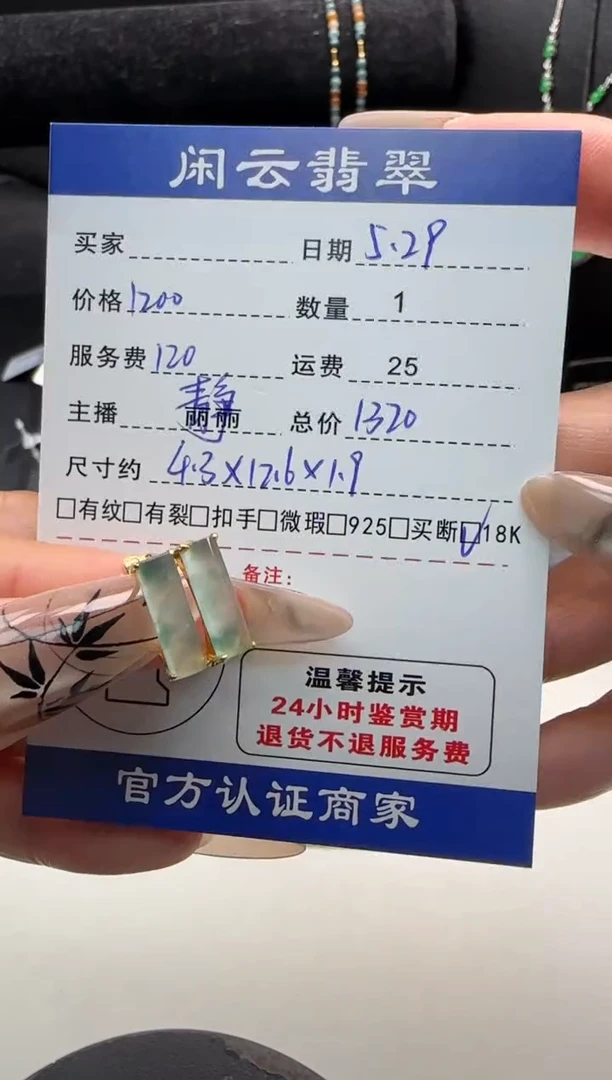 闲云翡翠
买家 日期 5.29
价格 1200 数量 1
服务费 120 运费 25
主播 丽丽 静 总价 1320
尺寸约 4.3×12.6×1.9
□有纹□有裂□扣手□微瑕□925□买断☑18K
备注:
温馨提示
24小时鉴赏期
退货不退服务费
官方认证商家